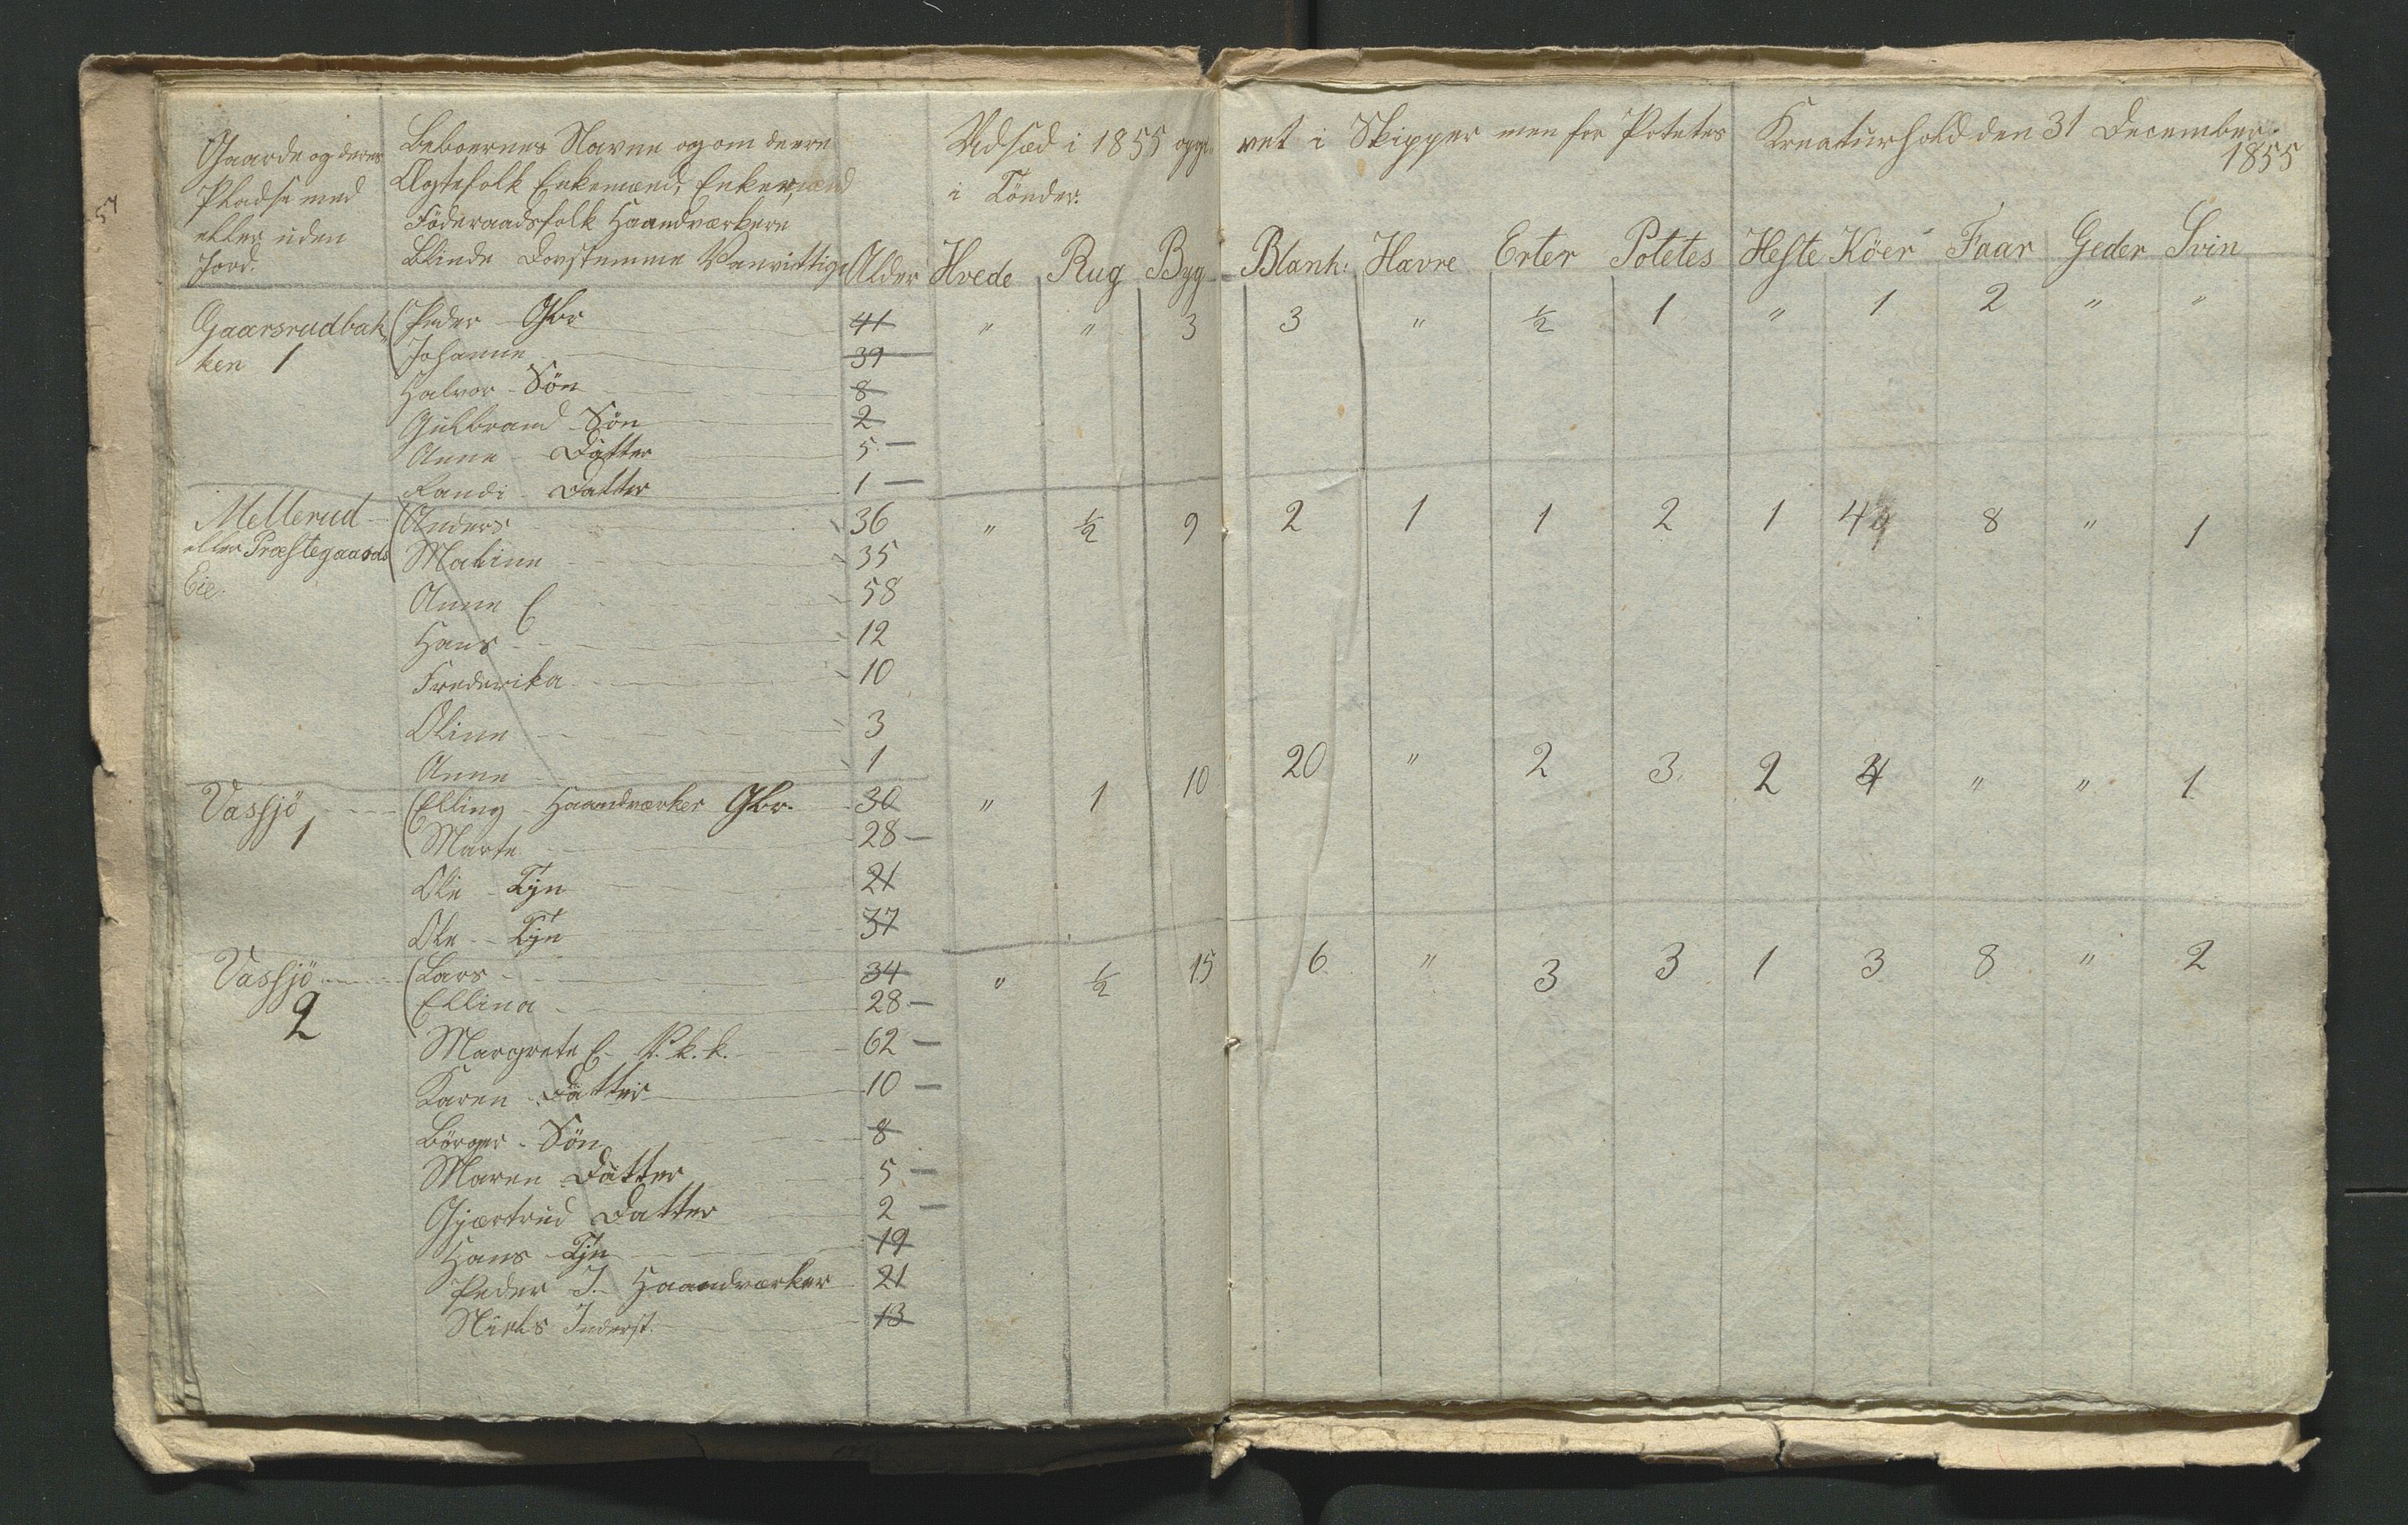 Gaarde og deres Pladse med eller uden Jord.
Beboernes Navne og om de ere Ægtefolk Enkemænd, Enker, Föderaadsfolk Haandværkere Blinde Dovstumme Vanvittige
Alder
Udsæd i 1855 opgi- vet i Skipper men for Potetes i Tönder.
Kreaturhold den 31 December 1855
Hvede Rug Byg Blank: Havre Erter Potetes Heste Köer Faar Geder Svin
Gaarsrudbak- (Peder Gbr 41 " " 3 3 " ½ 1 " 1 2 " "
ken 1 (Johanne 39
Halvor - Sön 8
Gulbrand Sön 2
Anne - Datter 5 -
Randi - Datter 1 -
Mellerud (Anders 36 " ½ 9 2 1 1 2 1 4 8 " 1
eller Præstegaards (Maline 35
Eie. Anne E 58
Hans 12
Frederika 10
Oline 3
Anne 1
Vassjö (Elling - Haandværker Gbr. 30 " 1 10 20 " 2 3 2 4 " " 1
1 (Marte 28 -
Ole - Tjn 21
Ole - Tjn 37
Vassjö (Lars 34 " ½ 15 6 " 3 3 1 3 8 " 2
2 (Ellina 28 -
Margrete E. 62 -
Karen Datter 10 -
Börger - Sön 8
Maren Datter 5 -
Gjærtrud Datter 2 -
Hans - Tjn 19
Peder I. Haandværker 21
Niels Inderst. 13